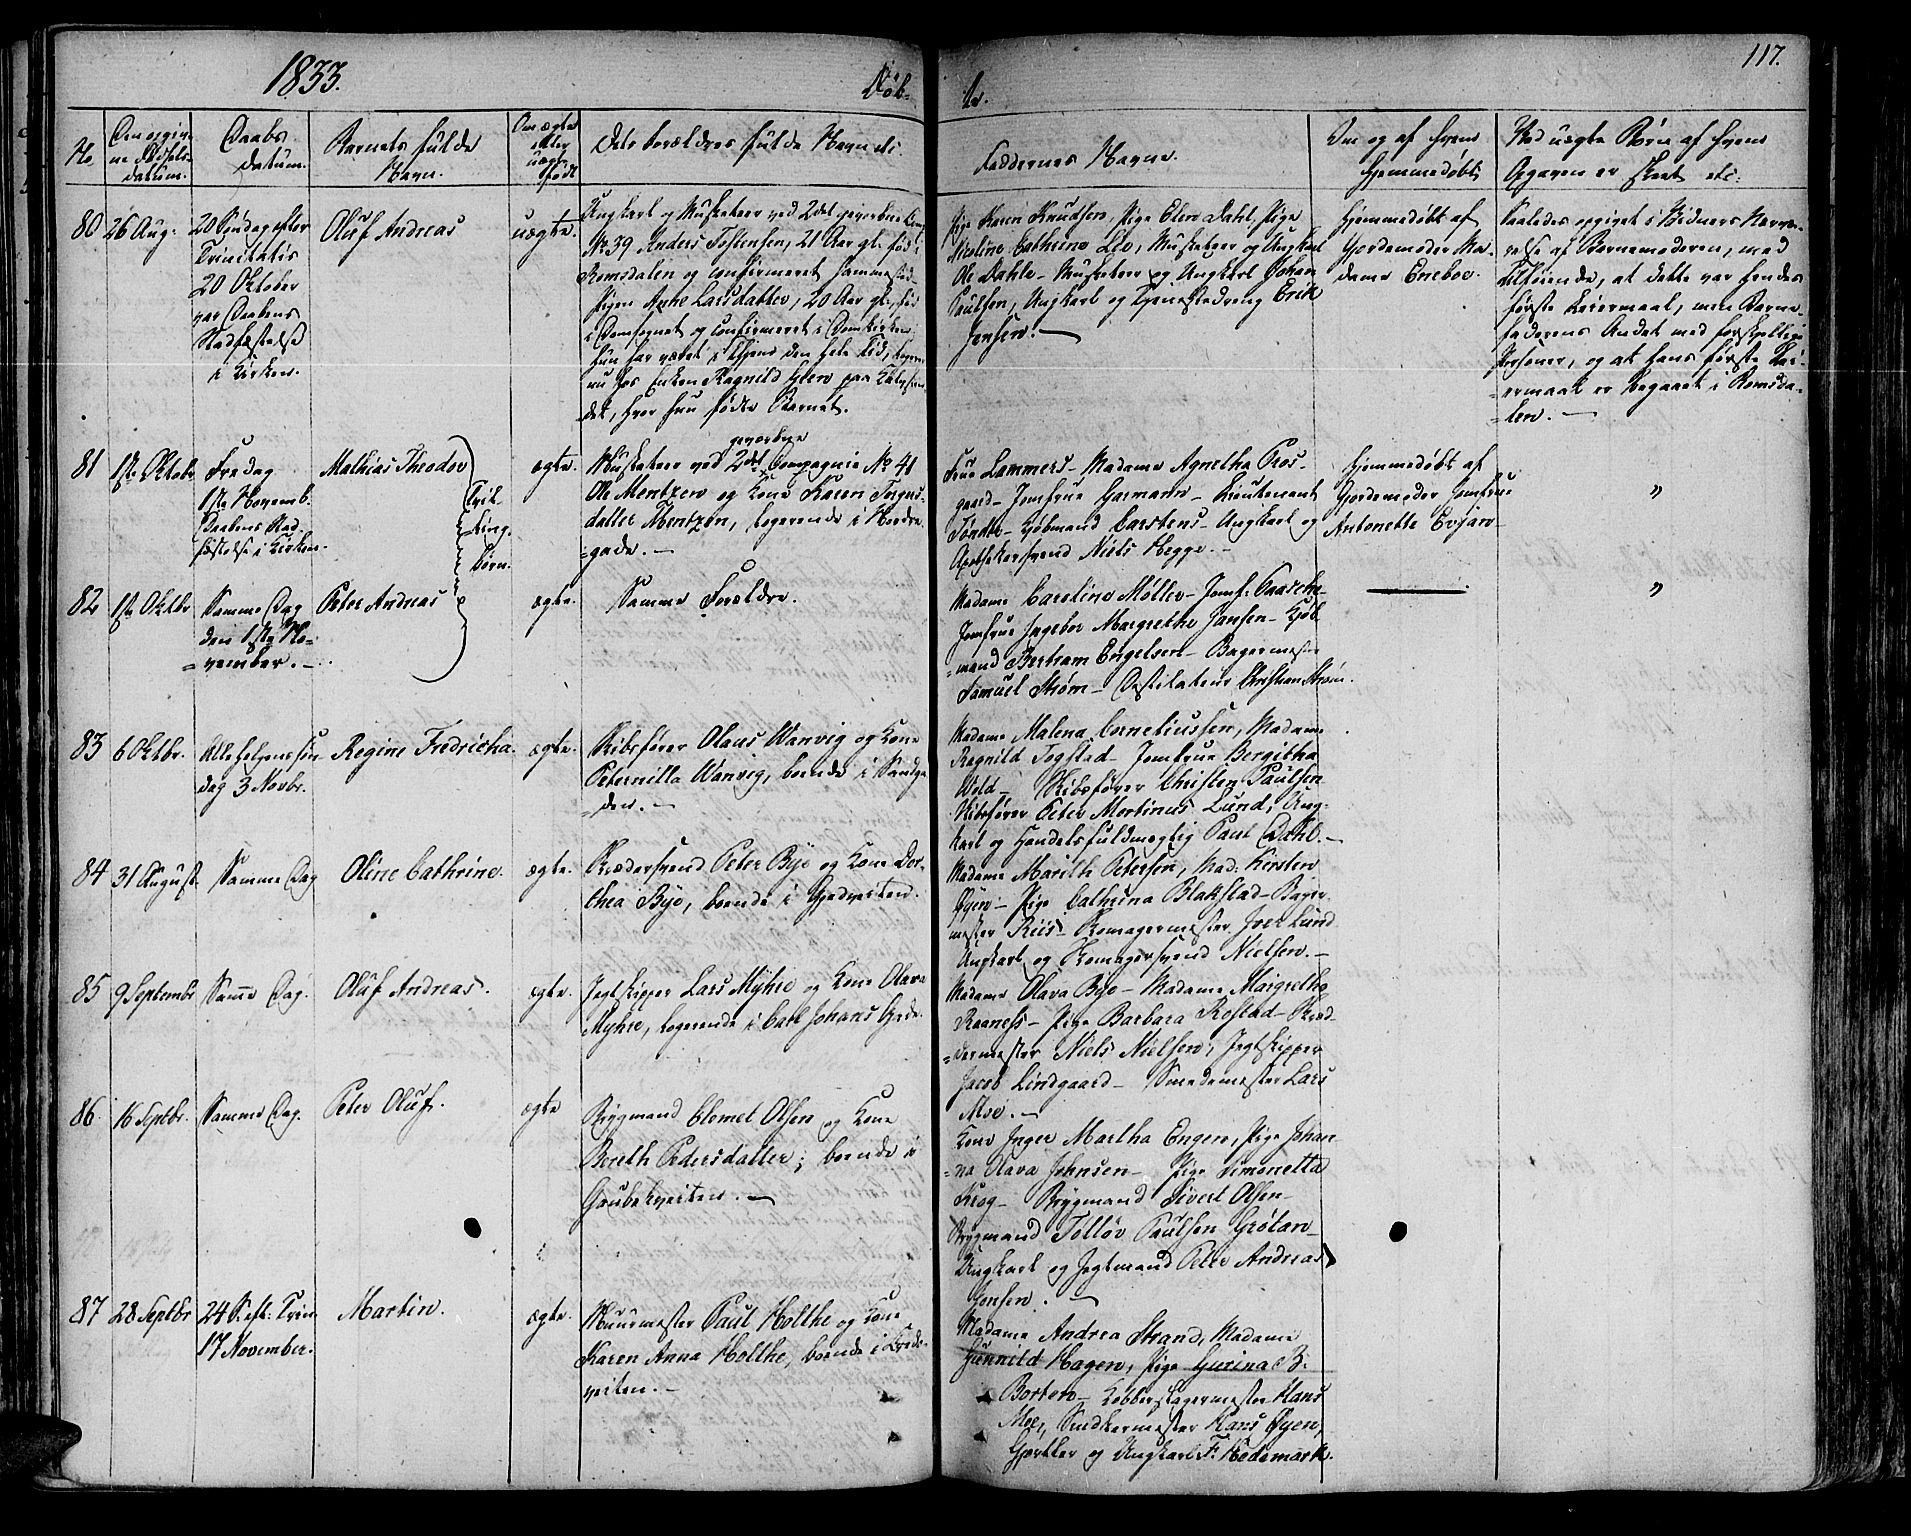 1833.
Døb-
te.
117.
No.
Den opgiv-
ne Fødsels-
datum.
Daabs
datum.
Barnets fulde
Navn.
Om ægte
eller
uægte
født
Dets Forældres fulde Navn etc.
Faddernes Navne.
Om og af hvem
hjemmedøbt
Ved uægte Børn af hvem
Opgaven er skeet etc:
80
26 Aug:
20 Søndag efter
Trinitatis
20 Oktober
var Daabens
Stadfæstelse
i Kirken.
Oluf Andreas
uægte.
Ungkarl og Musketeer ved 2det gevorbne Comp.
No. 39 Anders Tostensen, 21 Aar gl. fød i
Romsdalen og confirmeret sammested
Pigen Anne Larsdatter, 20 Aar gl., fød
i Domsognet og confirmeret i Domkirken
hun har været i Tjen. den hele Tid, logerer
nu hos Enken Ragnild paa Kalvskin-
det, hvor hun fødte Barnet.
Pige Karen Knudsen, Pige Elen Dahl, Pige
Nicoline Cathrine Lie, Musketeer og Ungkarl
Ole Dahle - Musketeer og Ungkarl Johan
Paulsen, Ungkarl og Tjenestedreng Erik
Jensen. -
Hjemmedøbt af
Gjordemoder Ma-
dame Eneboe.
Saaledes opgivet i Vidners Nærvæ-
relse af Barnemoderen, med
tilføiende, at dette var hendes
første Leiermaal, men Barne-
faderens Andet med forskjellige
Personer, og at hans første Lei-
ermaal er begaaet i Romsda-
len. -
81
1ste Oktobr
Fredag
1ste Novemb.
Daabens Stad-
fæstelse i Kirken.
Mathias Theodor
Tvil-
ling-
børn.
ægte.
gevorbne
Musketeer ved 2det Compagnie No 41
Ole Mentzen og Kone Karen Jørgens-
datter Mentzen, logerende i Nordre-
gade. -
Frue Lammers - Madame Agnetha Pros-
gaard - Jomfrue Garmann - Lieutenant
Tønder - Kjøbmand Carstens - Ungkarl og
Apothekersvend Niels Hegge. -
Hjemmedøbt af
Gjordemoder Jomfrue
Antonette Evjan -
"
82
1ste Oktbr
Samme Dag
den 1ste No-
vember. -
Peter Andreas
ægte.
Samme Forældre.
Madame Caroline Møller - Jomf.
Jomfrue Ingebor Margrethe Jansen - Kjøb-
mand Bertram Engelsen - Bagermester
Samuel Strøm - Destilateur Christian Strøm.
"
83
6 Oktbr.
Allehelgens søn-
dag 3 Novbr.
Regine Fredricha.
ægte.
Skibsfører Olaus Wanvig og Kone
Peternilla Wanvig, boende i Sandga-
den. -
Madame Malena Corneliussen, Madame
Ragnild Togstad - Jomfrue Bergitha
Wold - Skibsfører Christen Paulsen
Skibsfører Peter Martinus Lund, Ung-
karl og Handelsfuldmægtig Paul Dahl. -
84
31 August
Samme Dag
Oline Cathrine.
ægte.
Skrædersvend Peter Bye og Kone Dor-
thea Bye, boende i Gjedveiten.
Madame Marith Petersen, Mad: Kirsten
Øyen - Pige Cathrina Blakstad - Bager-
mester Riis - Skomagermester Joch Lund
Ungkarl og Skomagersvend Nielsen. -
85
9 Septembr
Samme Dag.
Oluf Andreas.
ægte.
Jegtskipper Lars Myhre og Kone Olava
Myhre, logerende i Carl Johans Gade.
Madame Olava Bye - Madame Margrethe
Raaness - Pige Barbara Rostad - Skræd-
dermester Niels Nielsen, Jegtskipper
Jacob Lindgaard - Smedemester Lars
Moe. -
86
16 Septbr.
Samme Dag.
Peter Oluf.
ægte
Brygmand Clemet Olsen og Kone
Bereth Pedersdatter; boende i
Grubekveiten. -
Kone Inger Martha Engen, Pige Johan-
na Olava Johnsen - Pige Simonetta
Krog - Brygmand Sivert Olsen -
Brygmand Tølløv Paulsen Grøtan -
Ungkarl og Jegtmand Peter Andreas
Jensen. -
87
28 Septbr
24 S. eft: Trin:
17 November.
Martin.
ægte.
Muurmester Paul Holthe og Kone
Karen Anna Holthe, boende i
veiten. -
Madame Andrea Strand, Madame
Gunnild Hagen, Pige Gurina B.
Borten - Kobberslagermester Hans
Moe, Snedkermester Hans Øyen,
Gjørtler og Ungkarl F. Hedemark.